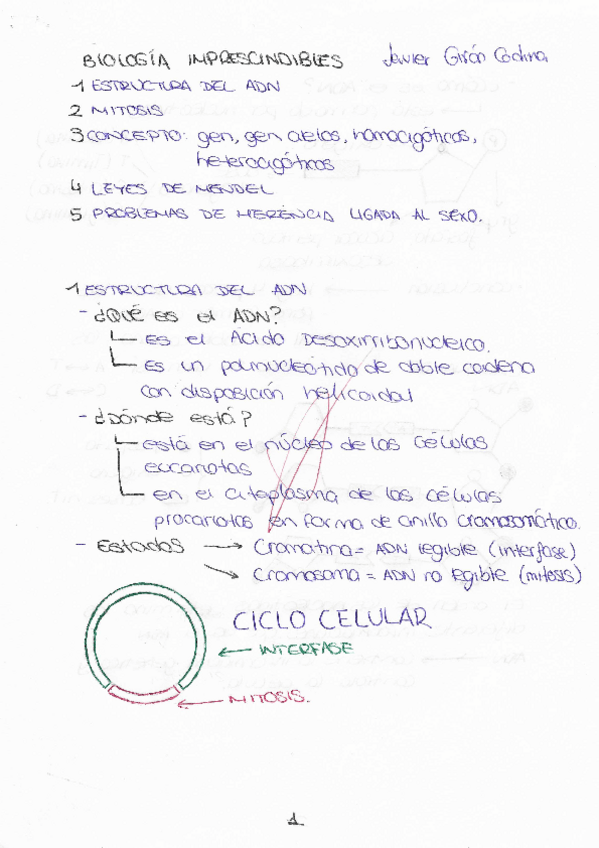 BIOLOGÍA IMPRESCINDIBLES Javier Girón Codina
1 ESTRUCTURA DEL ADN
2 MITOSIS
3 CONCEPTO: gen, gen alelos, homocigóticos,
heterocigóticos
4 LEYES DE MENDEL
5 PROBLEMAS DE HERENCIA LIGADA AL SEXO.
1 ESTRUCTURA DEL ADN
- ¿QUÉ ES el ADN?
Es el Ácido Desoxirribonucleico.
Es un polinucleótido de doble cadena
con disposición helicoidal
- ¿Dónde está?
está en el núcleo de las células
eucariotas
en el citoplasma de las células
procariotas en forma de anillo cromosomático.
- Estados → Cromatina = ADN legible (interfase)
→ Cromosoma = ADN no legible (mitosis)
CICLO CELULAR
← INTERFASE
← MITOSIS.
1